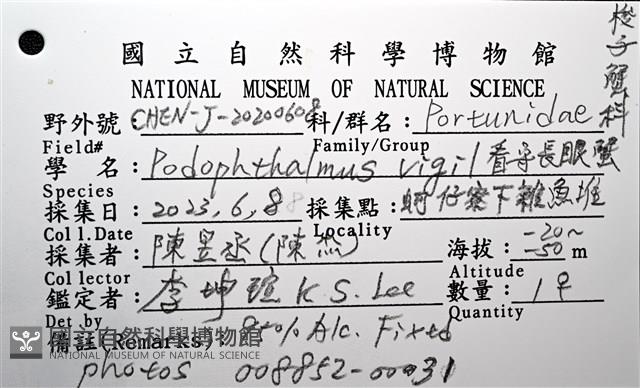 梭子蟹科
國立自然科學博物館
NATIONAL MUSEUM OF NATURAL SCIENCE
野外號 CHEN-J-20200608 科/群名: Portunidae
Field# Family/Group
學名: Podophthalmus vigil 看守長眼蟹
Species
採集日: 2023,6,8 採集點: 蚵仔寮下雜魚堆
Coll.Date Locality
採集者: 陳昱丞(陳杰) 海拔: -20~-50 m
Collector Altitude
鑑定者: 李坤瑄 K.S. Lee 數量: 1♀
Det.by Quantity
備註(Remarks) % Alc. Fixed
國立自然科學博物館
NATIONAL MUSEUM OF NATURAL SCIENCE
photos 008852-00031